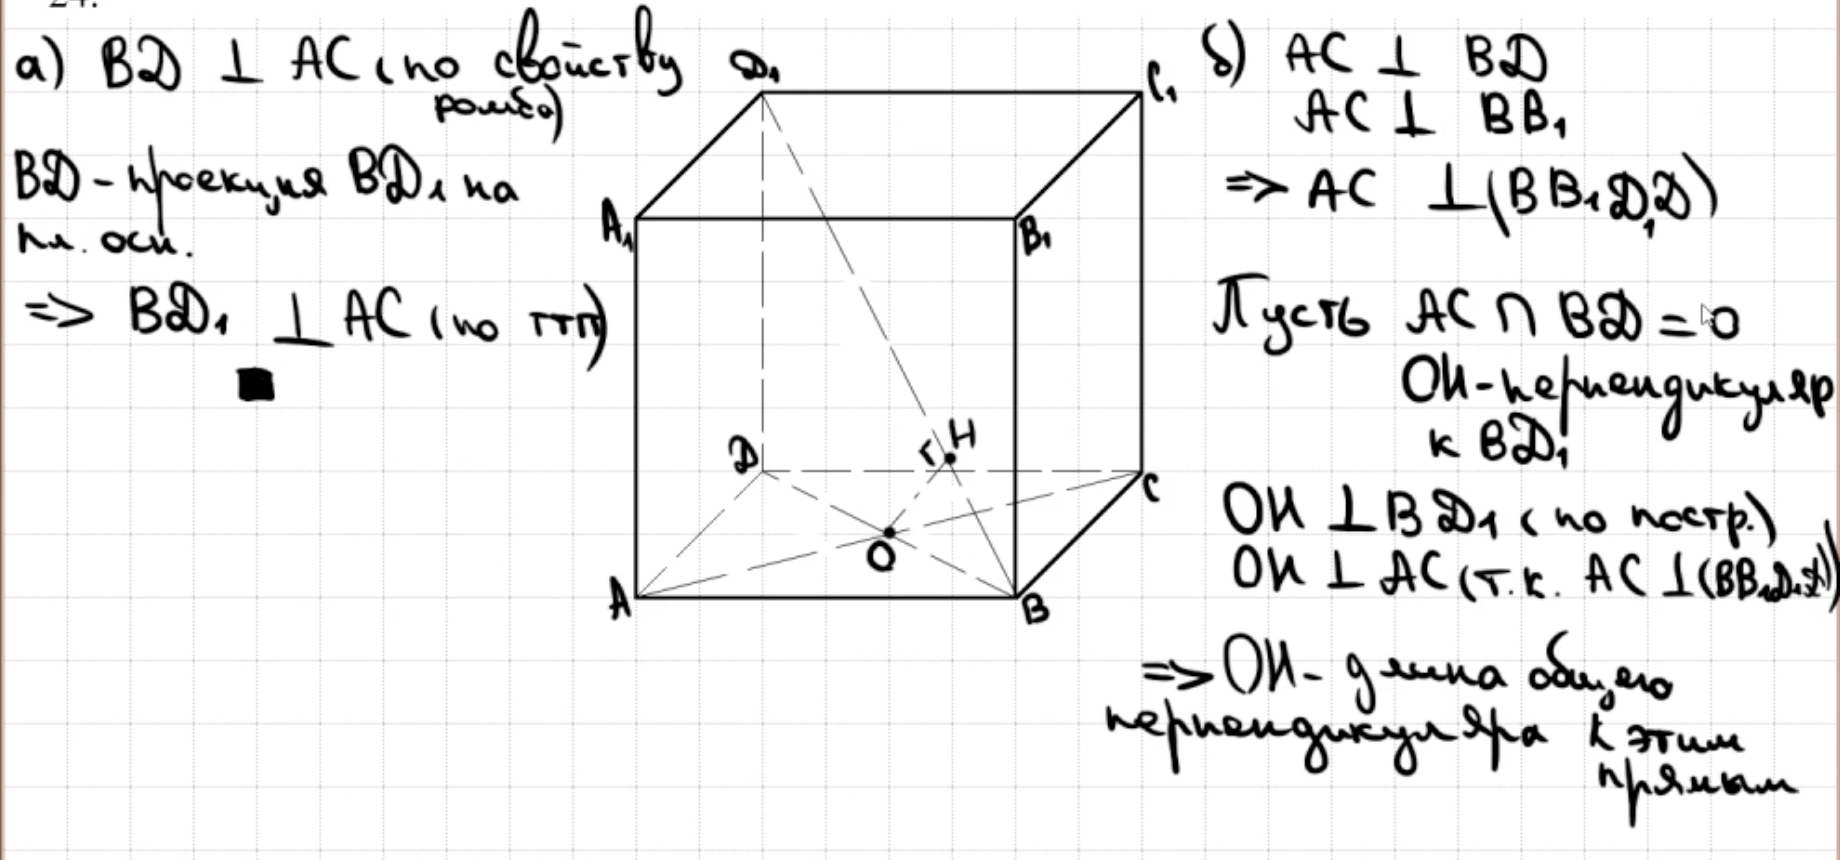 24.
а) BD ⊥ AC (по свойству
ромба)
BD - проекция BD₁ на
пл. осн.
=> BD₁ ⊥ AC (по ттп)
D₁
C₁
A₁
B₁
D
H
C
O
A
B
б) AC ⊥ BD
AC ⊥ BB₁
=> AC ⊥ (BB₁D₁D)
Пусть AC ∩ BD = O
OH - перпендикуляр
к BD₁
OH ⊥ BD₁ (по постр.)
OH ⊥ AC (т.к. AC ⊥ (BB₁D₁D))
=> OH - длина общего
перпендикуляра к этим
прямым